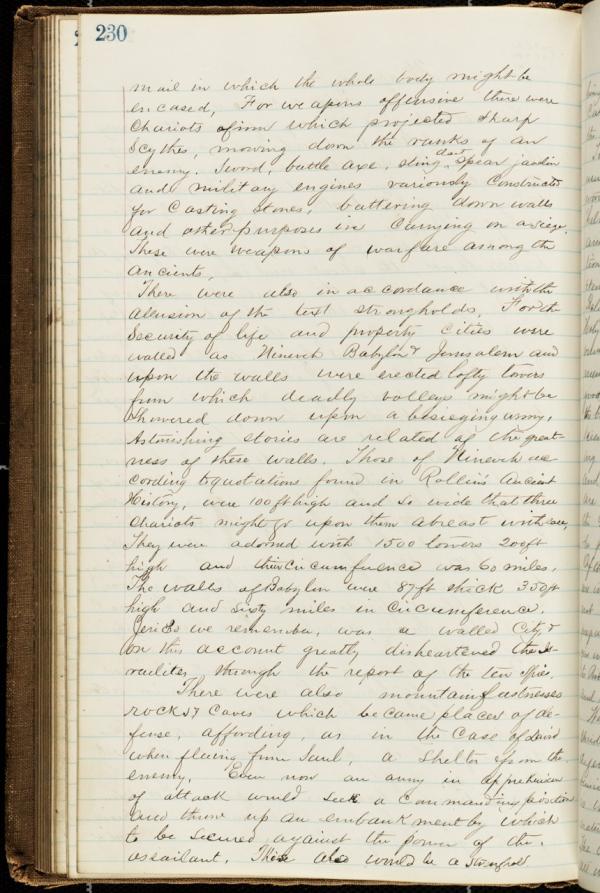 230
mail in which the whole body might be
encased. For weapons offensive there were
Chariots from which projected sharp
Scythes, mowing down the ranks of an
dart
enemy. Sword, battle axe, sling, Spear javelin
and military engines variously Constructed
for Casting Stones, battering down walls
and other purposes in Carrying on a siege.
These were weapons of warfare among the
ancients.
There were also in accordance with the
allusion of the text strongholds. For the
Security of life and property Cities were
walled as Nineveh Babylon & Jerusalem and
upon the walls were erected lofty towers
from which deadly volleys might be
Showered down upon a besieging army.
Astonishing stories are related of the great-
ness of these walls. Those of Nineveh ac-
cording to quotations found in Rollins Ancient
History, were 100 ft high and so wide that three
Chariots might go upon them abreast with ease,
They were adorned with 1500 towers 200 ft
high and their Circumference was 60 miles.
The walls of Babylon were 87 ft thick 350 ft
high and sixty miles in Circumference.
Jericho we remember, was a walled City &
on this account greatly disheartened the Is-
raelites, through the report of the ten spies.
There were also mountain fastnesses
rocks & Caves which became places of de-
fense, affording, as in the Case of David
when fleeing from Saul, a Shelter from the
enemy. Even now an army in apprehension
of attack would seek a Commanding position
and throw up an embankment by which
to be Secured against the power of the
assailant. This also would be a Stronghold